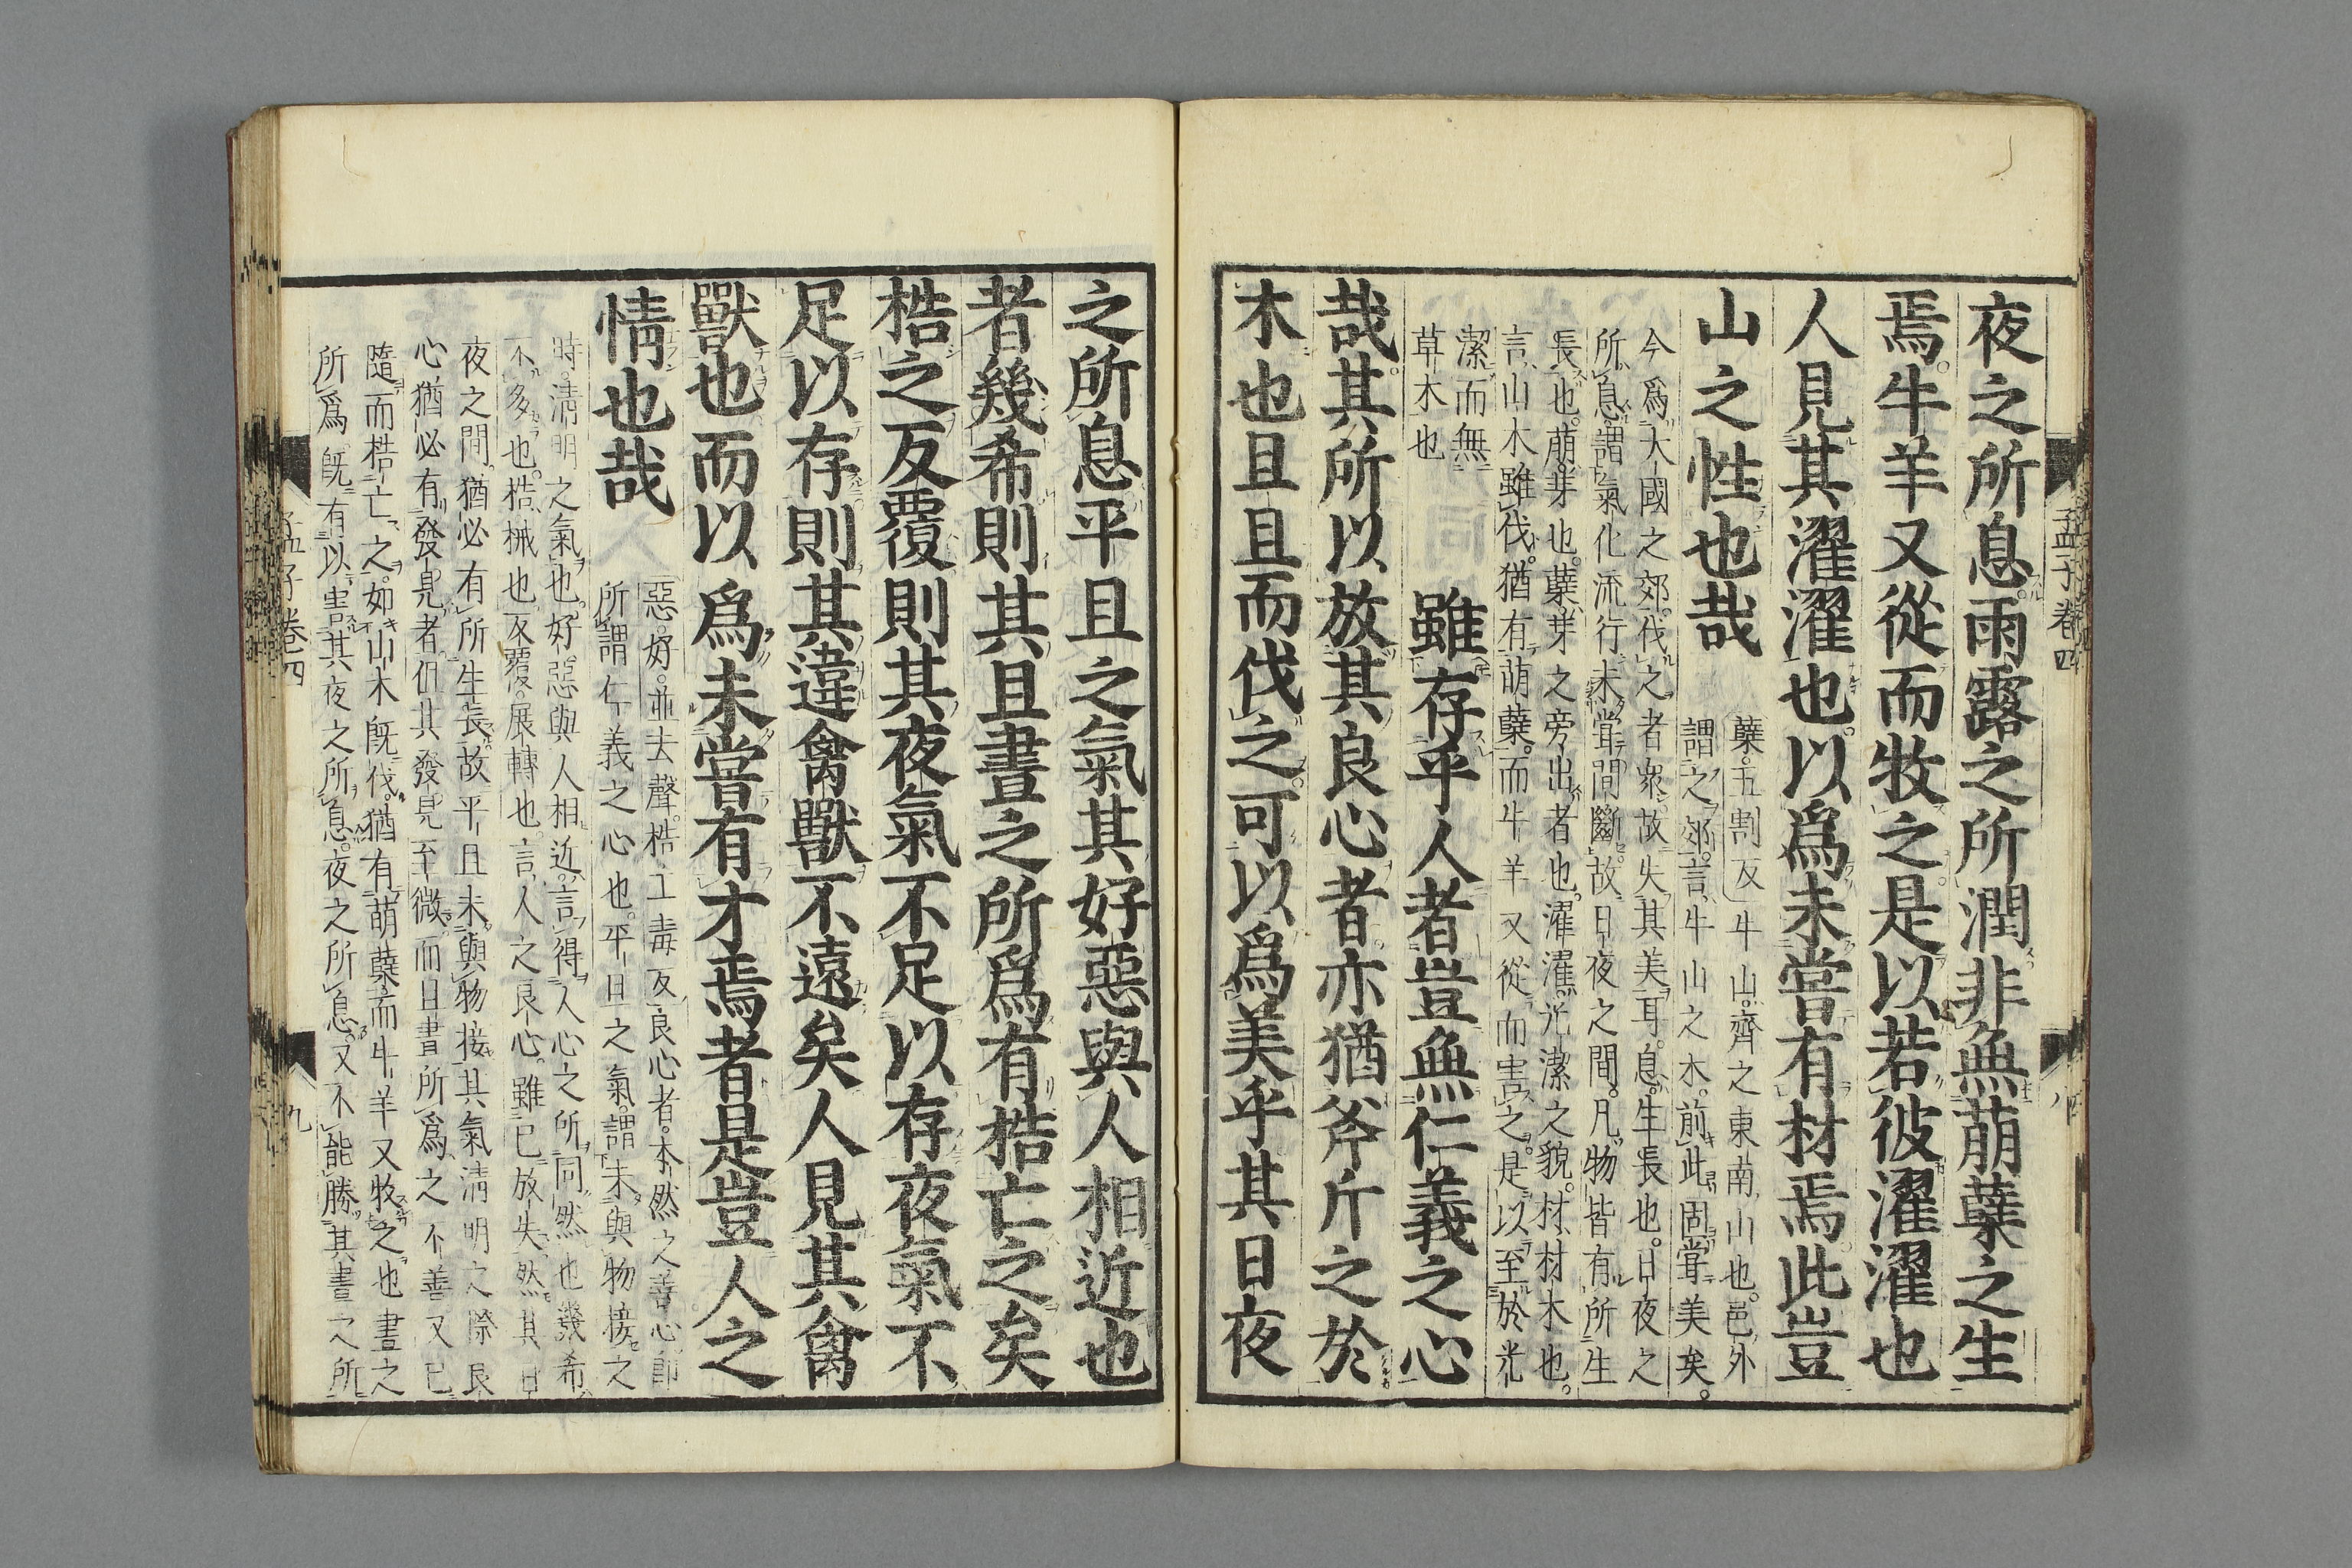 孟子卷四
夜之所息雨露之所潤非無萠蘖之生
焉牛羊又從而牧之是以若彼濯濯也
人見其濯濯也以爲未嘗有材焉此豈
山之性也哉
蘖五割反牛山齊之東南山也邑外
謂之郊言牛山之木前此固嘗美矣
今爲大國之郊伐之者衆故失其美耳息生長也日夜之
所息謂氣化流行未嘗間斷故日夜之間凡物皆有所生
長也萠芽也蘖芽之旁出者也濯濯光潔之貌材材木也
言山木雖伐猶有萠蘖而牛羊又從而害之是以至於光
潔而無
草木也
雖存乎人者豈無仁義之心
哉其所以放其良心者亦猶斧斤之於
木也旦旦而伐之可以爲美乎其日夜
之所息平旦之氣其好惡與人相近也
者幾希則其旦晝之所爲有梏亡之矣
梏之反覆則其夜氣不足以存夜氣不
足以存則其違禽獸不遠矣人見其禽
獸也而以爲未嘗有才焉者是豈人之
情也哉
惡好並去聲梏工毒反良心者本然之善心即
所謂仁義之心也平旦之氣謂未與物接之
時淸明之氣也好惡與人相近言得人心之所同然也幾希
不多也梏械也反覆展轉也言人之良心雖已放失然其日
夜之間猶必有所生長故平旦未與物接其氣淸明之際良
心猶必有發見者但其發見至微而旦晝所爲之不善又已
隨而梏亡之如山木旣伐猶有萠蘖而牛羊又牧之也晝之
所爲旣有以害其夜之所息夜之所息又不能勝其晝之所
孟子卷四
九